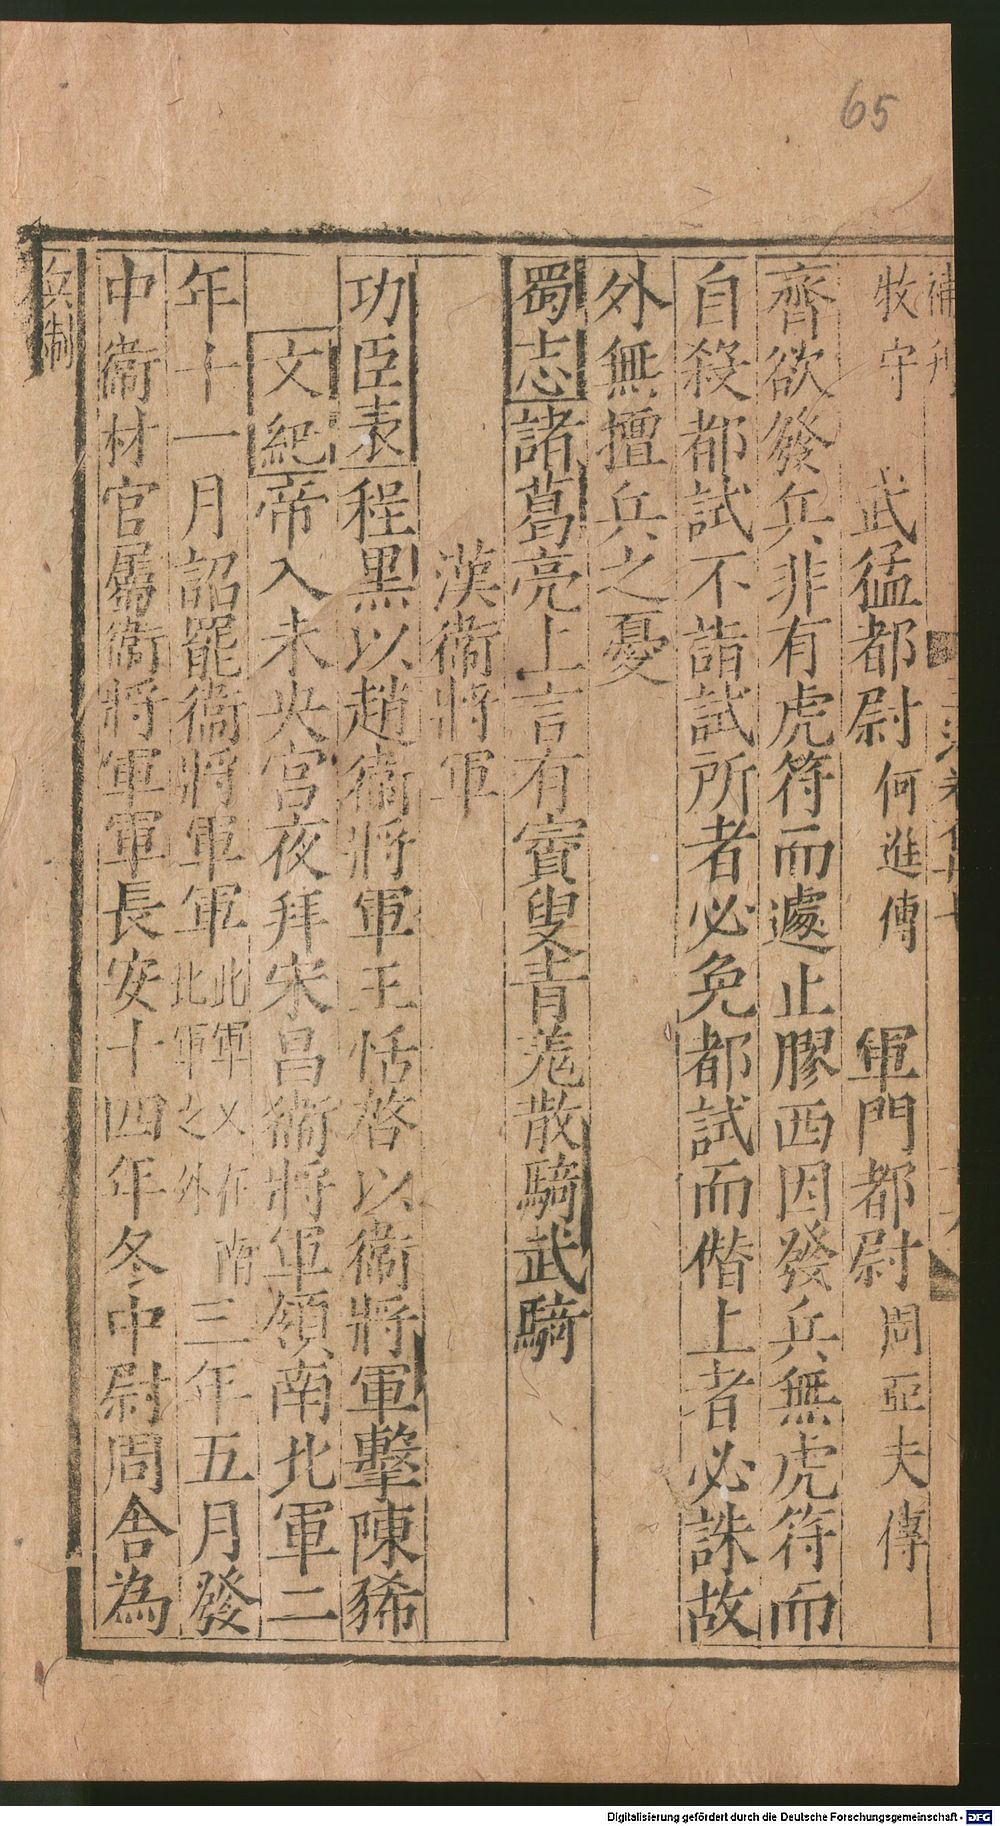 65
補刋
牧守　武猛都尉　何進傳　軍門都尉　周亞夫傳
齊欲發兵非有虎符而遽止膠西因發兵無虎符而
自殺都試不詣試所者必免都試而偕上者必誅故
外無擅兵之憂
蜀志諸葛亮上言有賨叟青羌散騎武騎
漢衛將軍
功臣表程黑以趙衛將軍王恬啓以衛將軍擊陳豨
文紀帝入未央宮夜拜宋昌衛將軍領南北軍二
年十一月詔罷衛將軍軍北軍又在南北軍之外三年五月發
中衛材官屬衛將軍軍長安十四年冬中尉周舍為
兵制
Digitalisierung gefördert durch die Deutsche Forschungsgemeinschaft - DFG